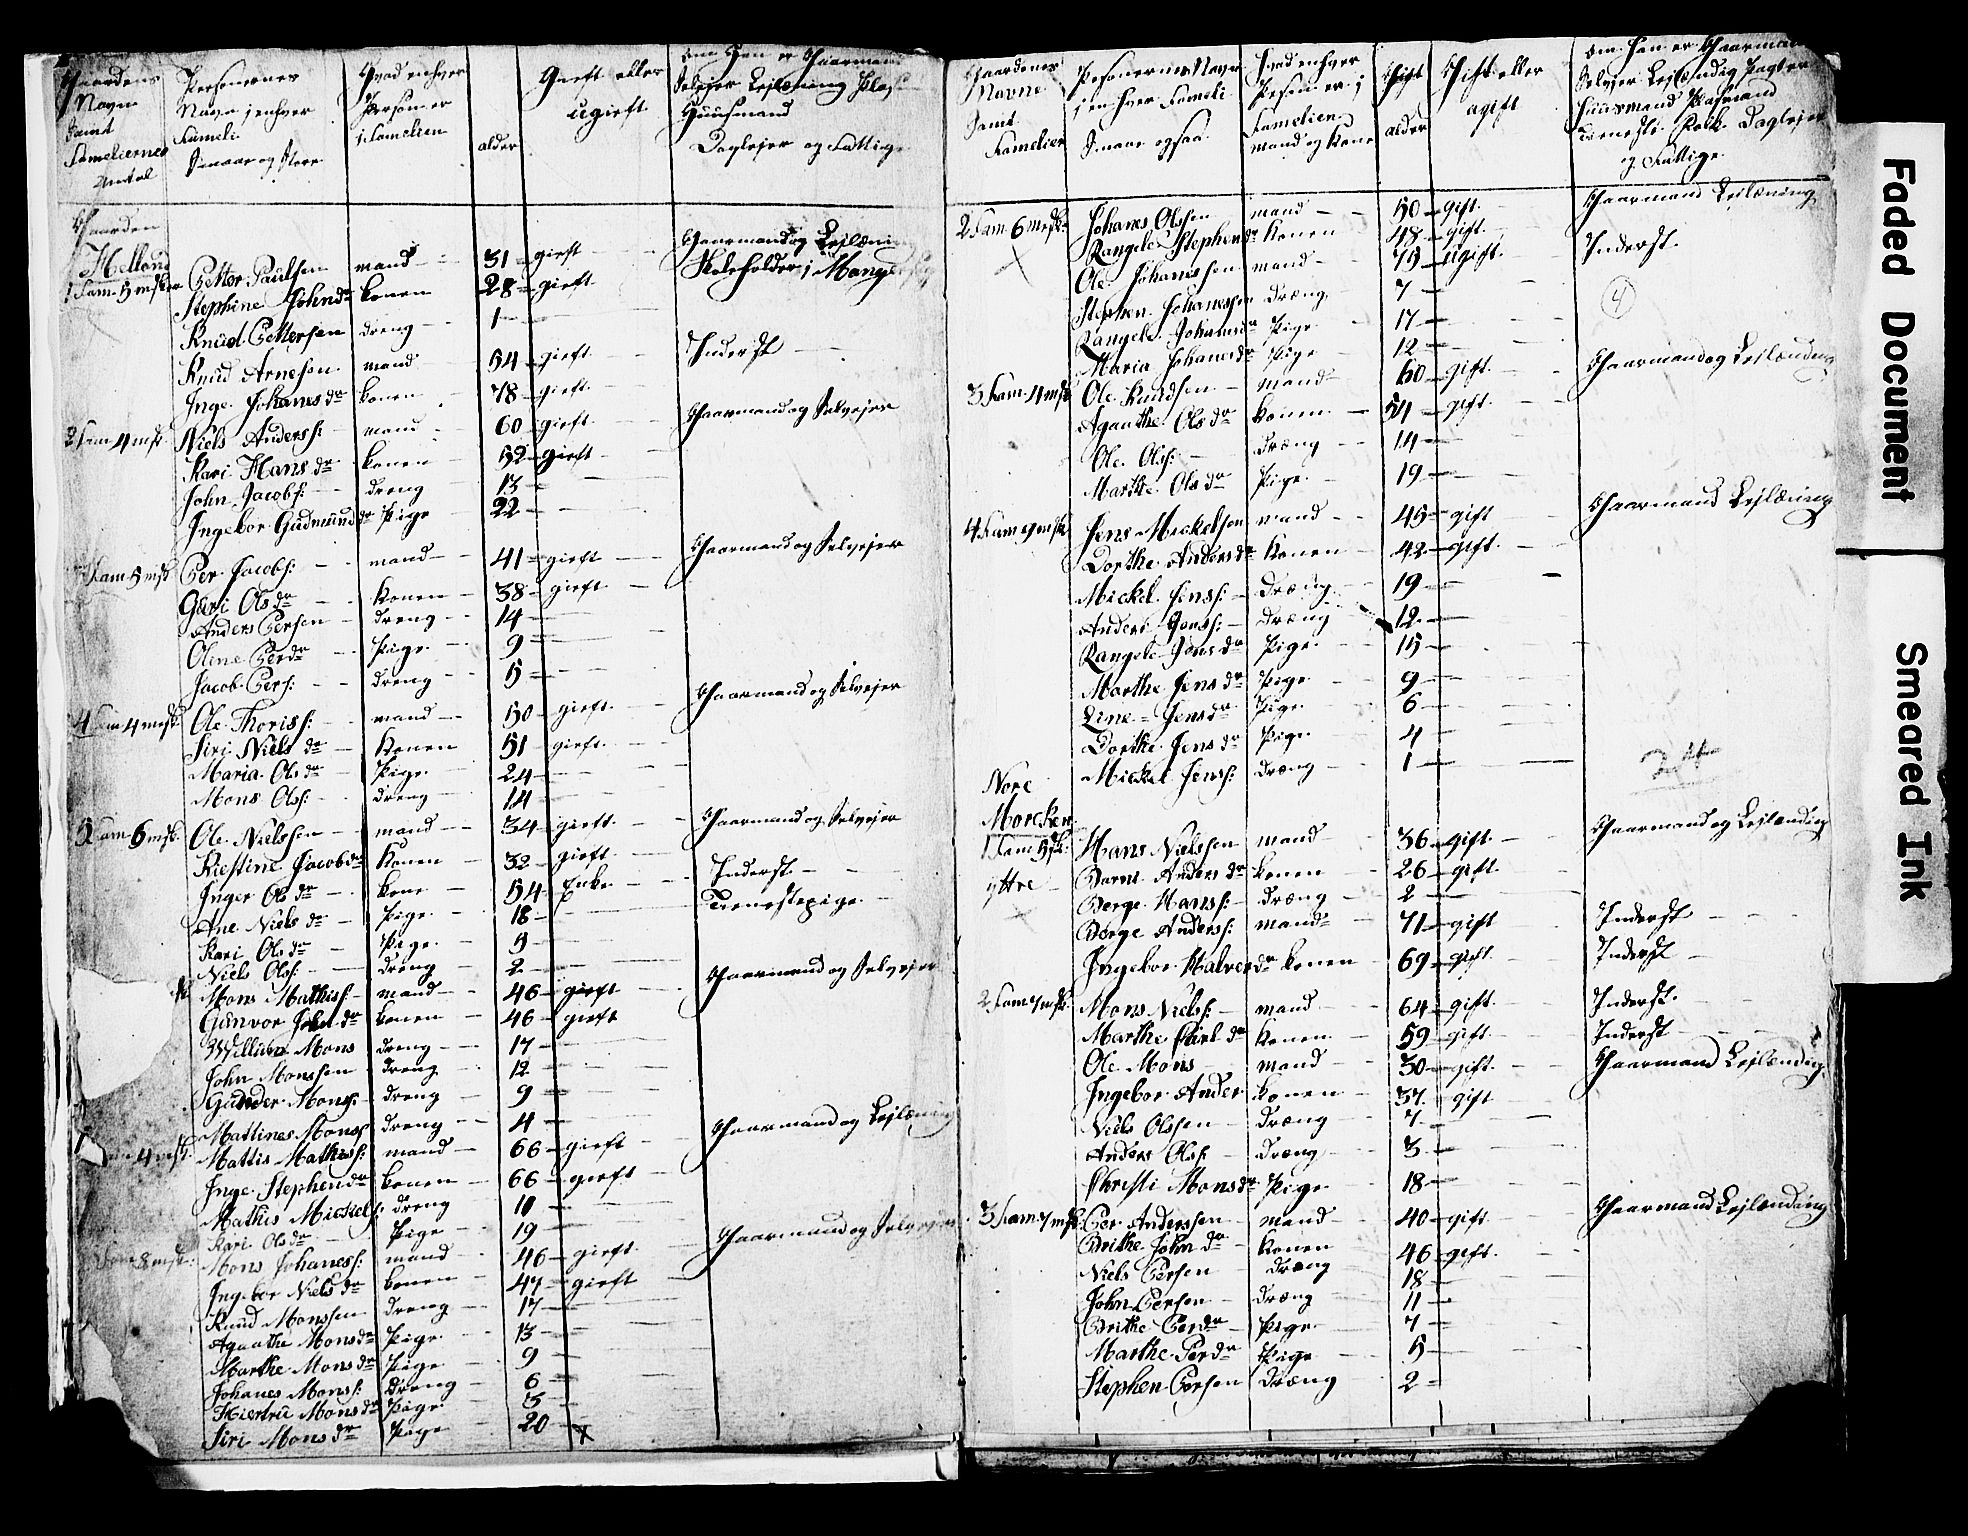 Gaardens
Navn
samt
Fameliernes
Antal
Personernes
Navn i enhver
Fameli
Smaae og Store
Hvad enhver
Person er
i Famelien
alder
Gieft eller
ugieft
om Han er Gaarmand
Selvejer Leilænding
Huusmand
Daglejer og Fattige
Gaarden
Helland
1 Fam 5 msk
Petter Paulsen mand 31 gieft Gaarmand og Lejlænding
Stephine Johnsdr konen 28 gieft Skoleholder i
Knud Pettersen dreng 1
Knud Arnesen mand 54 gieft Inderst
Inge Johanesdr konen 78 gieft
2 Fam 4 msk Niels Anders: mand 60 gieft Gaarmand og Selvejer
Kari Hansdr konen 52 gieft
John Jacobs: dreng 13
Ingebor Gudmundsdr Pige 22
3 Fam 5 msk Per Jacobs: mand 41 gieft Gaarmand og Selvejer
Guri Olsdr Konen 38 gieft
Anders Persen dreng 14
Oline Perdr Pige 9
Jacob Pers: dreng 5
4 Fam 4 msk Ole Thoriss: mand 50 gieft Gaarmand og Selvejer
Siri Nielsdr Konen 51 gieft
Maria Olsdr Pige 24
Mons Ols: dreng 14
5 Fam 6 msk Ole Nielssen mand 34 gieft Gaarmand og Selvejer
Kiestine Jacobsdr Konen 32 gieft
Inger Olsdr kone 54 Enke Inderst
Ane Nielsdr Pige 18 Tienestepige
Kari Olsdr Pige 5
Niels Ols: dreng 2
Mons Mathis: mand 46 gieft Gaarmand og Selvejer
Gunvor Johndr konen 46 gieft
Willum Mons dreng 17
John Monssen dreng 12
Gunder Mons: dreng 9
Mattines Monss dreng 4
4 msk Mattis Mathis: mand 66 gieft Gaarmand og Lejlænding
Inge Stephendr konen 66 gieft
Mathis Mickels: dreng 11
Kari Olsdr Pige 19
Fam 8 msk Mons Johanes: mand 46 gieft Gaarmand og Selvejer
Ingebor Nielsdr konen 47 gieft
Knud Monssen dreng 17
Agaathe Monsdr Pige 13
Marthe Monsdr Pige 9
Johanes Mons: dreng 6
Kiertru Monsdr Pige 3
Siri Monsdr Pige 20
Gaardenes
Navne
Samt
Famelier
Personernes Navn
i en hver Fameli
Smaae ogsaa
Hvad enhver
Person er i
Famelien
mand og kone
alder
Gift eller
ugift
om Han er Gaarmand
Selvejer Lejlænding Pagter
Huusmand Pladsmand
Tieneste Folk Daglejer
og Fattige
2 Fam 6 msk Johanes Olssen mand 50 gift Gaarmand Lejlæning
Rangele Stephendr Konen 48 gift
Ole Johanissen mand 79 ugift Inderst
4
Stephen Johanessen dræng 7
Rangele Johanesdr Pige 17
Maria Johanesdr Pige 12
3 Fam 4 msk Ole Knudsen mand 60 gift Gaarmand og Lejlænding
Agaathe Olsdr konen 54 gift
Ole Ols: dræng 14
Marthe Olsdr Pige 19
4 Fam 9 msk Jens Mickelsen mand 45 gift Gaarmand Lejlæning
Dorthe Andersdr Konen 42 gift
Mickel Jens: Dræng 19
Anders Jens: Dræng 12
Rangele Jensdr Pige 15
Marthe Jensdr Pige 9
Line Jensdr Pige 6
Dorthe Jensdr Pige 4
Mickel Jens: Dræng 1
24
Nore
Morcken
1 Fam 5 msk Hans Nielssen mand 36 gift Gaarmand og Lejlænding
yttre
Barni Andersdr konen 26 gift
Berge Hans: Dræng 2
Børge Anders: mand 71 gift Inderst
Ingebor Halverdr konen 69 gift Inderst
2 Fam 7 msk Mons Niels: mand 64 gift Inderst
Marthe Carldr Konen 59 gift Inderst
Ole Mons mand 30 gift Gaarmand Lejlænding
Ingebor Ander konen 37 gift
Niels Olssen Dræng 7
Anders Ols: Dræng 3
Christi Monsdr Pige 18
3 Fam 7 msk Per Anderssen mand 40 gift Gaarmand Lejlænding
Brithe Johndr konen 46 gift
Niels Persen Dræng 18
John Persen Dræng 11
Brithe Perdr Pige 7
Marthe Perdr Pige 5
Stephen Persen Dræng 2
Faded Document
Smeared Ink